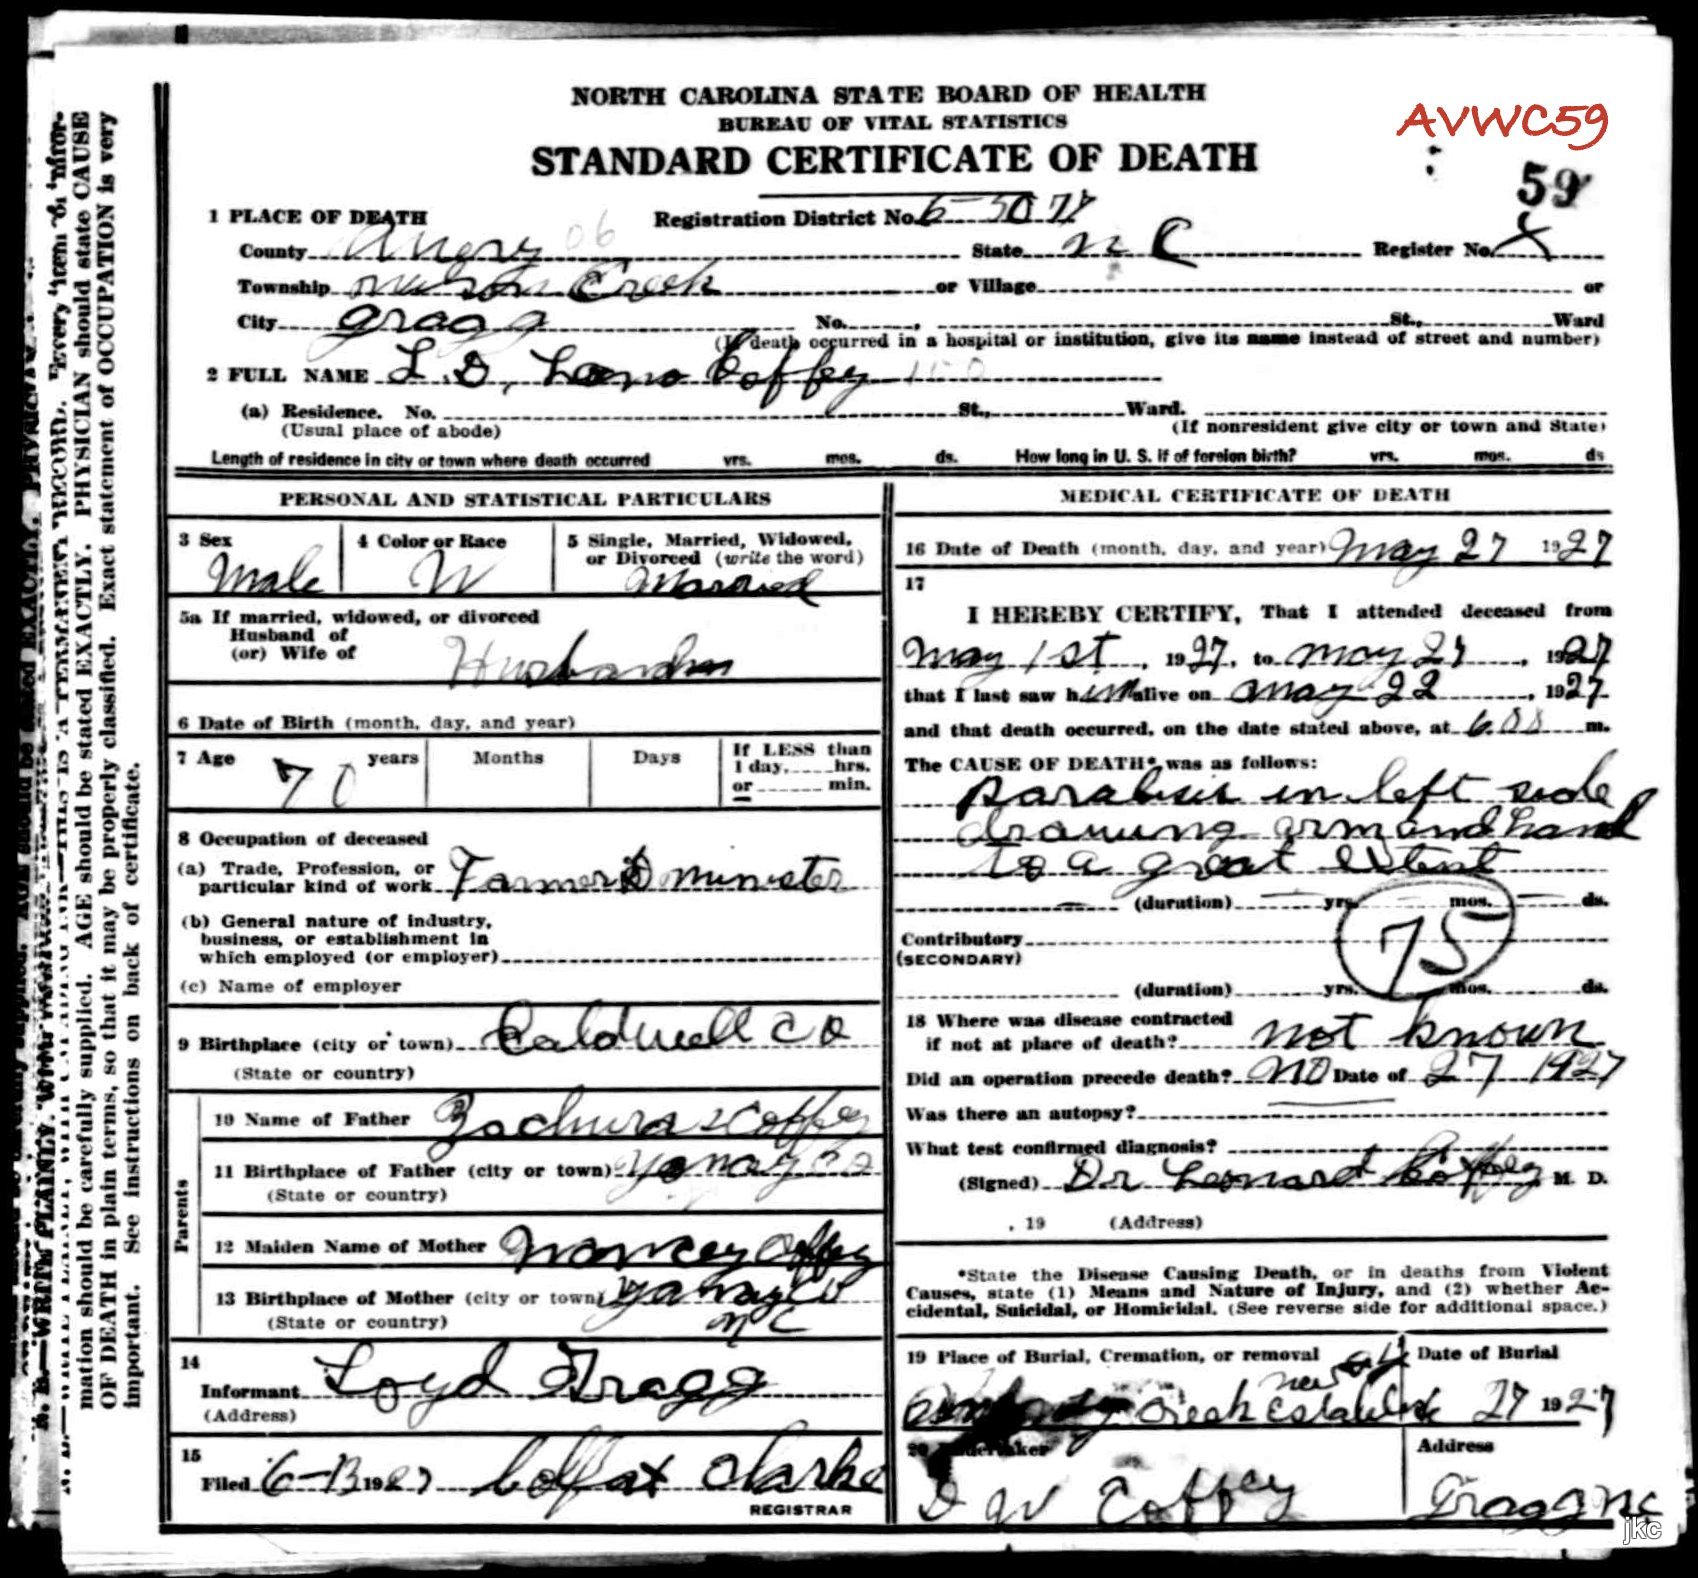 NORTH CAROLINA STATE BOARD OF HEALTH
BUREAU OF VITAL STATISTICS
STANDARD CERTIFICATE OF DEATH
AVWC59
59
1 PLACE OF DEATH Registration District No. 6-5077
06
County Avery State N C Register No. X
Township Creek or Village or
City Gragg No. , St., Ward
(If death occurred in a hospital or institution, give its name instead of street and number)
2 FULL NAME L. D, Coffey
(a) Residence. No. St., Ward.
(Usual place of abode) (If nonresident give city or town and State)
Length of residence in city or town where death occurred yrs. mos. ds. How long in U. S. if of foreign birth? yrs. mos. ds
PERSONAL AND STATISTICAL PARTICULARS
3 Sex 4 Color or Race 5 Single, Married, Widowed,
or Divorced (write the word)
Male W Married
5a If married, widowed, or divorced
Husband of
(or) Wife of
6 Date of Birth (month, day, and year)
7 Age 70 years Months Days If LESS than
1 day, hrs.
or min.
8 Occupation of deceased
(a) Trade, Profession, or
particular kind of work Farmer & minister
(b) General nature of industry,
business, or establishment in
which employed (or employer)
(c) Name of employer
9 Birthplace (city or town) Caldwell Co
(State or country)
Parents
10 Name of Father Coffey
11 Birthplace of Father (city or town) Co
(State or country)
12 Maiden Name of Mother Coffey
13 Birthplace of Mother (city or town) Co
(State or country) N C
14
Informant Loyd Gragg
(Address)
15
Filed 6-13 1927 Colfax Clarke
REGISTRAR
MEDICAL CERTIFICATE OF DEATH
16 Date of Death (month, day, and year) May 27 1927
17
I HEREBY CERTIFY, That I attended deceased from
May 1st, 1927, to May 27, 1927
that I last saw him alive on May 22, 1927
and that death occurred, on the date stated above, at 6.00 m.
The CAUSE OF DEATH* was as follows:
in left side
drawing arm and hand
to a great extent
(duration) yrs. mos. ds.
75
Contributory
(SECONDARY)
(duration) yrs. mos. ds.
18 Where was disease contracted
if not at place of death? not known
Did an operation precede death? NO Date of 27 1927
Was there an autopsy?
What test confirmed diagnosis?
(Signed) Dr Leonard Coffey M. D.
, 19 (Address)
*State the Disease Causing Death, or in deaths from Violent
Causes, state (1) Means and Nature of Injury, and (2) whether Ac-
cidental, Suicidal, or Homicidal. (See reverse side for additional space.)
19 Place of Burial, Cremation, or removal Date of Burial
Creek 27 1927
20 Undertaker Address
D W Coffey Gragg N.C
jkc
mation should be carefully supplied. AGE should be stated EXACTLY. PHYSICIAN should state CAUSE
OF DEATH in plain terms, so that it may be properly classified. Exact statement of OCCUPATION is very
important. See instructions on back of certificate.